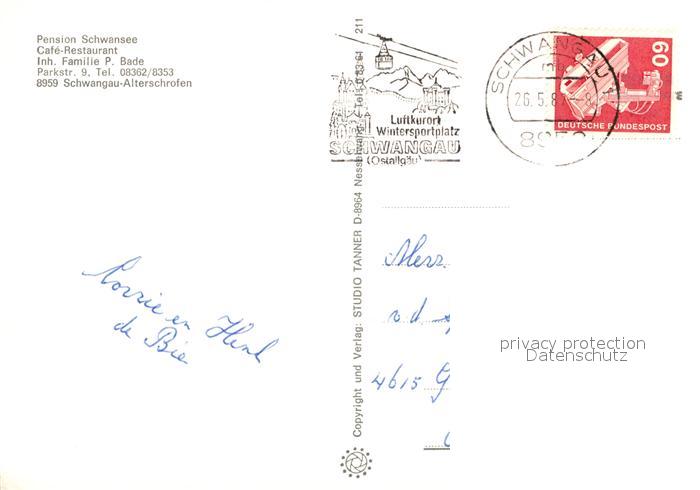 Pension Schwansee
Café-Restaurant
Inh. Familie P. Bade
Parkstr. 9, Tel. 08362/8353
8959 Schwangau-Alterschrofen
Luftkurort
Wintersportplatz
SCHWANGAU
(Ostallgäu)
SCHWANGAU
26.5.8
60
DEUTSCHE BUNDESPOST
Copyright und Verlag: STUDIO TANNER D-8964 Nesselwang Tel. 0 83 61 211
v d
4615 G
Corrie en Henk
de Bie
privacy protection
Datenschutz